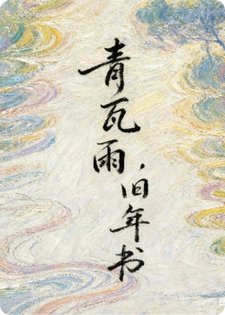 青瓦雨，旧年书